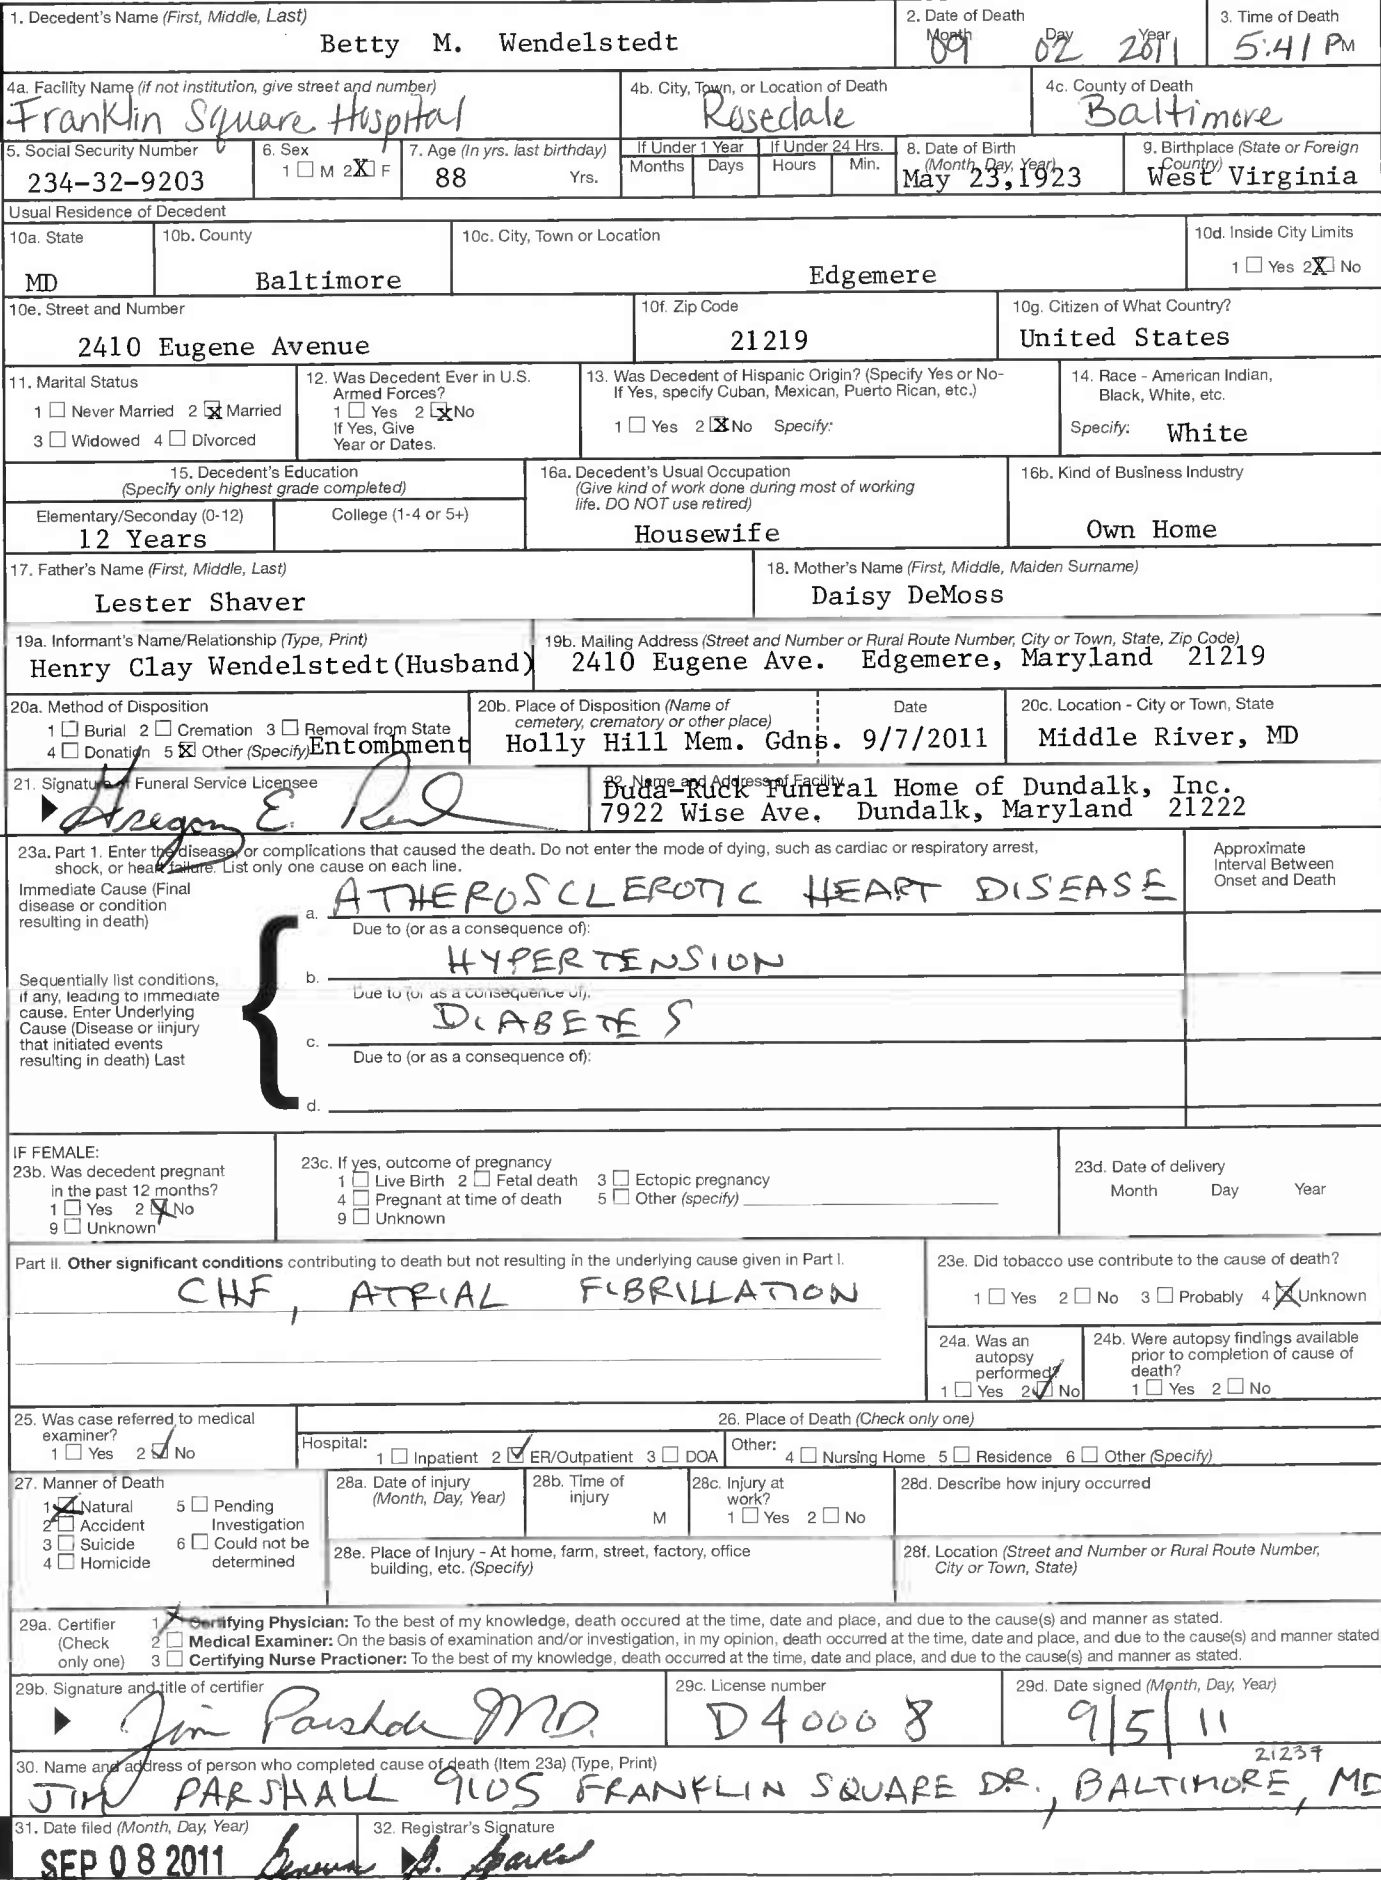 1. Decedent's Name (First, Middle, Last)
Betty M. Wendelstedt
2. Date of Death
Month Day Year
09 02 2011
3. Time of Death
5:41 PM
4a. Facility Name (if not institution, give street and number)
Franklin Square Hospital
4b. City, Town, or Location of Death
Rosedale
4c. County of Death
Baltimore
5. Social Security Number
234-32-9203
6. Sex
1 ☐ M 2 ☒ F
7. Age (In yrs. last birthday)
88 Yrs.
If Under 1 Year
Months Days
If Under 24 Hrs.
Hours Min.
8. Date of Birth
(Month, Day, Year)
May 23,1923
9. Birthplace (State or Foreign
Country)
West Virginia
Usual Residence of Decedent
10a. State
MD
10b. County
Baltimore
10c. City, Town or Location
Edgemere
10d. Inside City Limits
1 ☐ Yes 2 ☒ No
10e. Street and Number
2410 Eugene Avenue
10f. Zip Code
21219
10g. Citizen of What Country?
United States
11. Marital Status
1 ☐ Never Married 2 ☒ Married
3 ☐ Widowed 4 ☐ Divorced
12. Was Decedent Ever in U.S.
Armed Forces?
1 ☐ Yes 2 ☒ No
If Yes, Give
Year or Dates.
13. Was Decedent of Hispanic Origin? (Specify Yes or No-
If Yes, specify Cuban, Mexican, Puerto Rican, etc.)
1 ☐ Yes 2 ☒ No Specify:
14. Race - American Indian,
Black, White, etc.
Specify: White
15. Decedent's Education
(Specify only highest grade completed)
Elementary/Seconday (0-12)
12 Years
College (1-4 or 5+)
16a. Decedent's Usual Occupation
(Give kind of work done during most of working
life. DO NOT use retired)
Housewife
16b. Kind of Business Industry
Own Home
17. Father's Name (First, Middle, Last)
Lester Shaver
18. Mother's Name (First, Middle, Maiden Surname)
Daisy DeMoss
19a. Informant's Name/Relationship (Type, Print)
Henry Clay Wendelstedt(Husband)
19b. Mailing Address (Street and Number or Rural Route Number, City or Town, State, Zip Code)
2410 Eugene Ave. Edgemere, Maryland 21219
20a. Method of Disposition
1 ☐ Burial 2 ☐ Cremation 3 ☐ Removal from State
4 ☐ Donation 5 ☒ Other (Specify) Entombment
20b. Place of Disposition (Name of
cemetery, crematory or other place)
Holly Hill Mem. Gdns.
Date
9/7/2011
20c. Location - City or Town, State
Middle River, MD
21. Signature of Funeral Service Licensee
Gregory E.
22. Name and Address of Facility
Duda-Ruck Funeral Home of Dundalk, Inc.
7922 Wise Ave. Dundalk, Maryland 21222
23a. Part 1. Enter the disease, or complications that caused the death. Do not enter the mode of dying, such as cardiac or respiratory arrest,
shock, or heart failure. List only one cause on each line.
Approximate
Interval Between
Onset and Death
Immediate Cause (Final
disease or condition
resulting in death)
a. ATHEROSCLEROTIC HEART DISEASE
Due to (or as a consequence of):
b. HYPERTENSION
Due to (or as a consequence of):
Sequentially list conditions,
if any, leading to immediate
cause. Enter Underlying
Cause (Disease or iinjury
that initiated events
resulting in death) Last
c. DIABETES
Due to (or as a consequence of):
d.
IF FEMALE:
23b. Was decedent pregnant
in the past 12 months?
1 ☐ Yes 2 ☒ No
9 ☐ Unknown
23c. If yes, outcome of pregnancy
1 ☐ Live Birth 2 ☐ Fetal death 3 ☐ Ectopic pregnancy
4 ☐ Pregnant at time of death 5 ☐ Other (specify)
9 ☐ Unknown
23d. Date of delivery
Month Day Year
Part II. Other significant conditions contributing to death but not resulting in the underlying cause given in Part I.
CHF, ATRIAL FIBRILLATION
23e. Did tobacco use contribute to the cause of death?
1 ☐ Yes 2 ☐ No 3 ☐ Probably 4 ☒ Unknown
24a. Was an
autopsy
performed?
1 ☐ Yes 2 ☑ No
24b. Were autopsy findings available
prior to completion of cause of
death?
1 ☐ Yes 2 ☐ No
25. Was case referred to medical
examiner?
1 ☐ Yes 2 ☑ No
26. Place of Death (Check only one)
Hospital: 1 ☐ Inpatient 2 ☑ ER/Outpatient 3 ☐ DOA
Other: 4 ☐ Nursing Home 5 ☐ Residence 6 ☐ Other (Specify)
27. Manner of Death
1 ☒ Natural 5 ☐ Pending
2 ☐ Accident Investigation
3 ☐ Suicide 6 ☐ Could not be
4 ☐ Homicide determined
28a. Date of injury
(Month, Day, Year)
28b. Time of
injury
M
28c. Injury at
work?
1 ☐ Yes 2 ☐ No
28d. Describe how injury occurred
28e. Place of Injury - At home, farm, street, factory, office
building, etc. (Specify)
28f. Location (Street and Number or Rural Route Number,
City or Town, State)
29a. Certifier
(Check
only one)
1 ☒ Certifying Physician: To the best of my knowledge, death occured at the time, date and place, and due to the cause(s) and manner as stated.
2 ☐ Medical Examiner: On the basis of examination and/or investigation, in my opinion, death occurred at the time, date and place, and due to the cause(s) and manner stated
3 ☐ Certifying Nurse Practioner: To the best of my knowledge, death occurred at the time, date and place, and due to the cause(s) and manner as stated.
29b. Signature and title of certifier
Jim Parshall MD.
29c. License number
D40008
29d. Date signed (Month, Day, Year)
9/5/11
30. Name and address of person who completed cause of death (Item 23a) (Type, Print)
21237
JIM PARSHALL 9105 FRANKLIN SQUARE DR., BALTIMORE, MD
31. Date filed (Month, Day, Year)
SEP 08 2011
32. Registrar's Signature